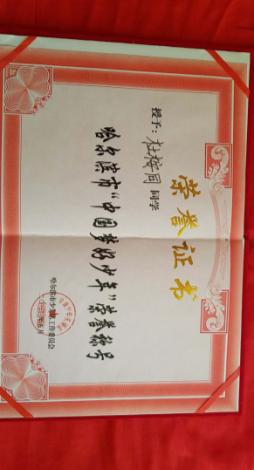 荣誉证书
授予：杜梓同 同学
哈尔滨市“中国梦好少年”荣誉称号
哈尔滨市少工作委员会